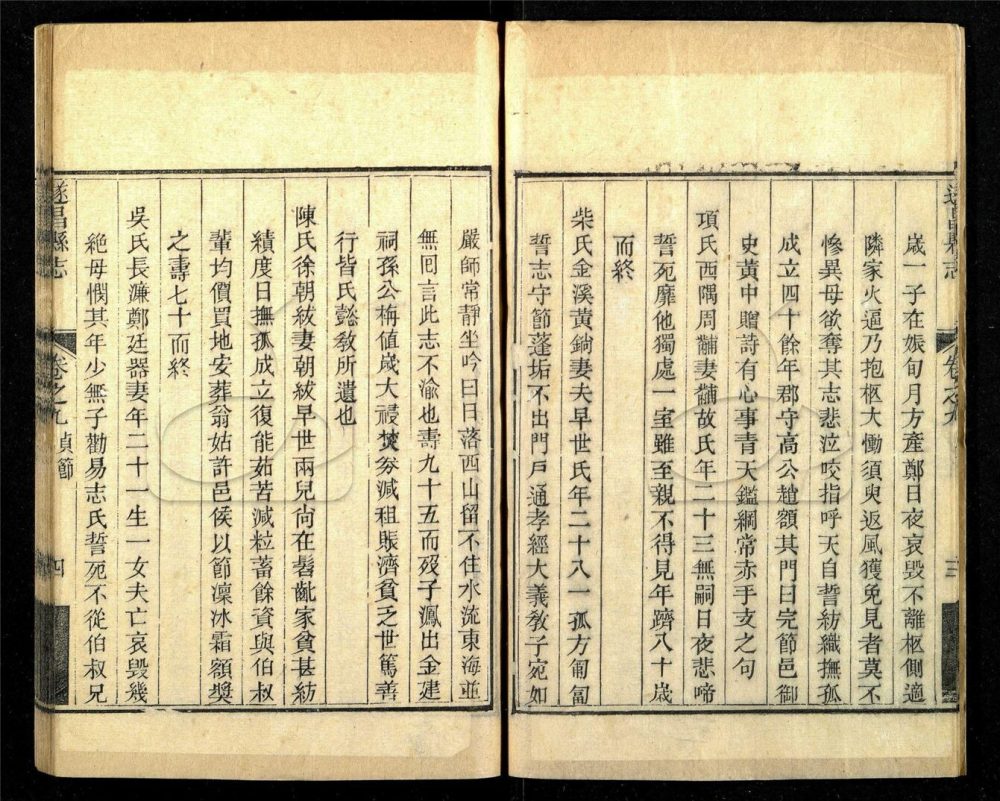 遂昌縣志
卷之九
三
歲一子在娠旬月方產鄭日夜哀毀不離柩側適
隣家火逼乃抱柩大慟須臾返風獲免見者莫不
慘異母欲奪其志悲泣咬指呼天自誓紡織撫孤
成立四十餘年郡守高公趙額其門曰完節邑御
史黃中贈詩有心事青天鑑綱常赤手支之句
項氏西隅周黼妻黼故氏年二十三無嗣日夜悲啼
誓死靡他獨處一室雖至親不得見年躋八十歲
而終
柴氏金溪黃鈉妻夫早世氏年二十八一孤方匍匐
誓志守節蓬垢不出門戶通孝經大義敎子宛如
嚴師常靜坐吟曰日落西山留不住水流東海並
無回言此志不渝也壽九十五而歿子鳳出金建
祠孫公梅值歲大祲焚券減租賑濟貧乏世篤善
行皆氏懿敎所遺也
陳氏徐朝紱妻朝紱早世兩兒尙在髫齔家貧甚紡
績度日撫孤成立復能茹苦減粒蓄餘資與伯叔
輩均價買地安葬翁姑許邑侯以節凜冰霜額奬
之壽七十而終
吳氏長濂鄭廷器妻年二十一生一女夫亡哀毀幾
絶母憫其年少無子勸易志氏誓死不從伯叔兄
遂昌縣志
卷之九 貞節
四